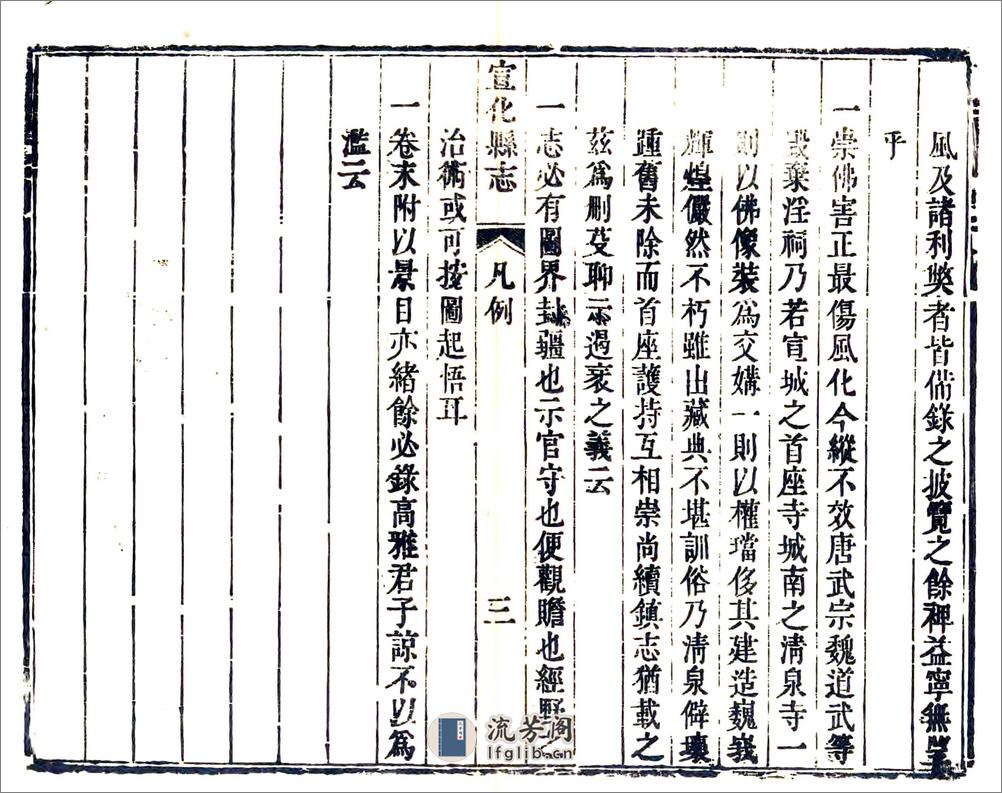 風及諸利獘者皆備錄之披覽之餘裨益寧無望
乎
一崇佛害正最傷風化今縱不效唐武宗魏道武等
毁棄淫祠乃若宣城之首座寺城南之清泉寺一
則以佛像裝為交媾一則以權璫侈其建造巍峩
輝煌儼然不朽雖出藏典不堪訓俗乃清泉僻壤
踵舊未除而首座護持互相崇尚續鎮志猶載之
茲為删芟聊示遏衺之義云
一志必有圖界封疆也示官守也便觀瞻也經野
宣化縣志
凡例
三
治術或可按圖起悟耳
一卷末附以景目亦緒餘必錄高雅君子諒不以為
濫云
流芳阁
lfglib.cn